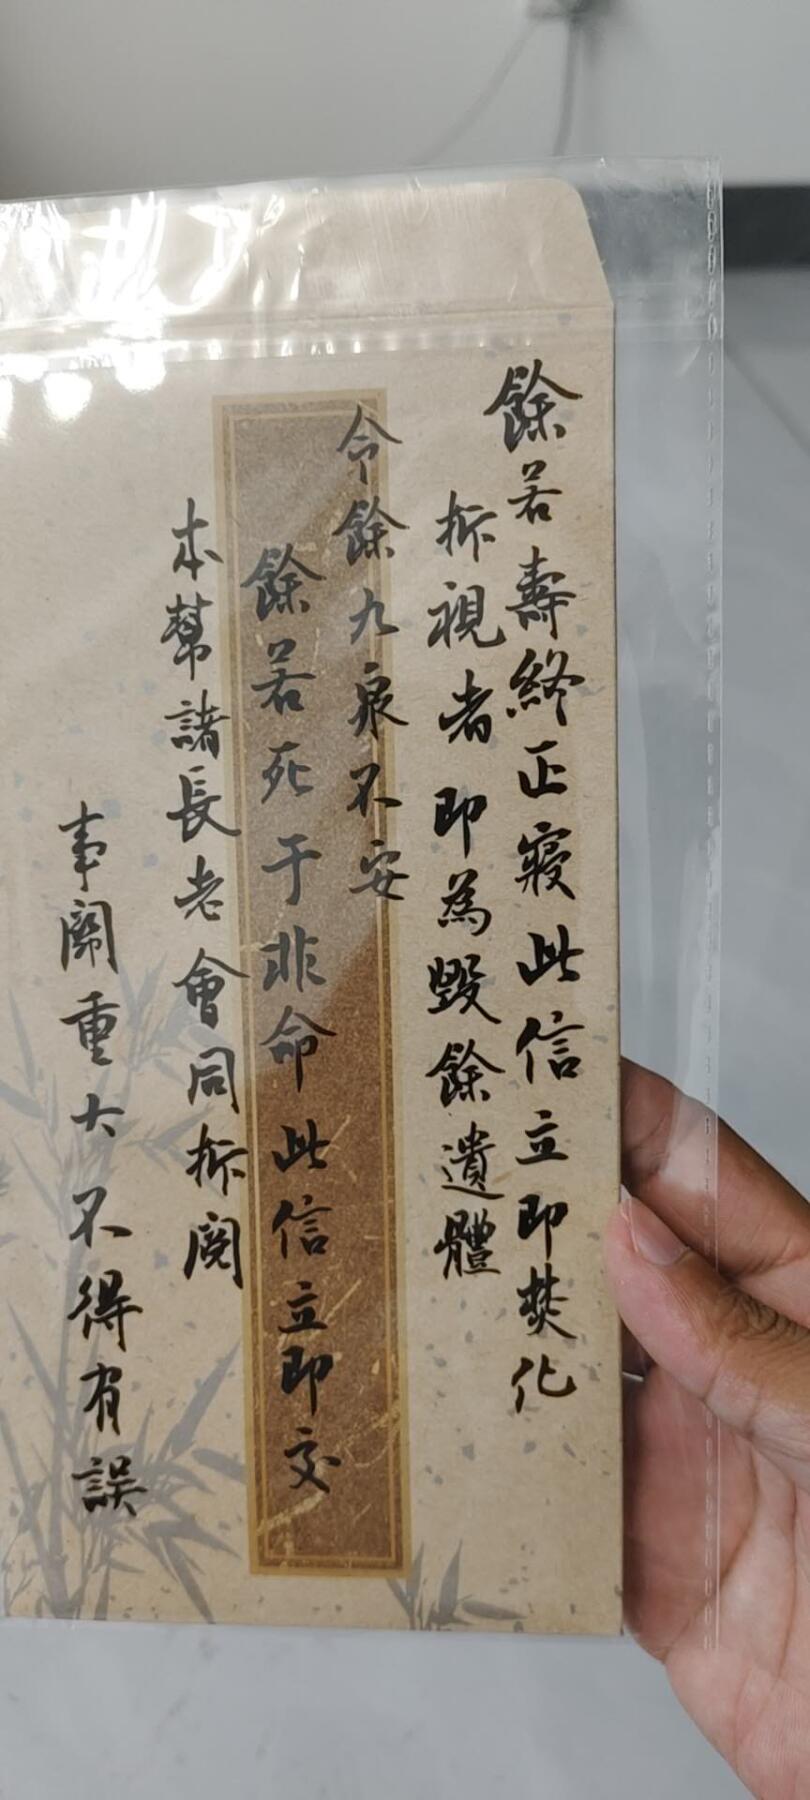 餘若壽終正寢此信立即焚化
拆視者即為毀餘遺體
令餘九泉不安
餘若死于非命此信立即交
本幫諸長老會同拆閱
事關重大不得有誤